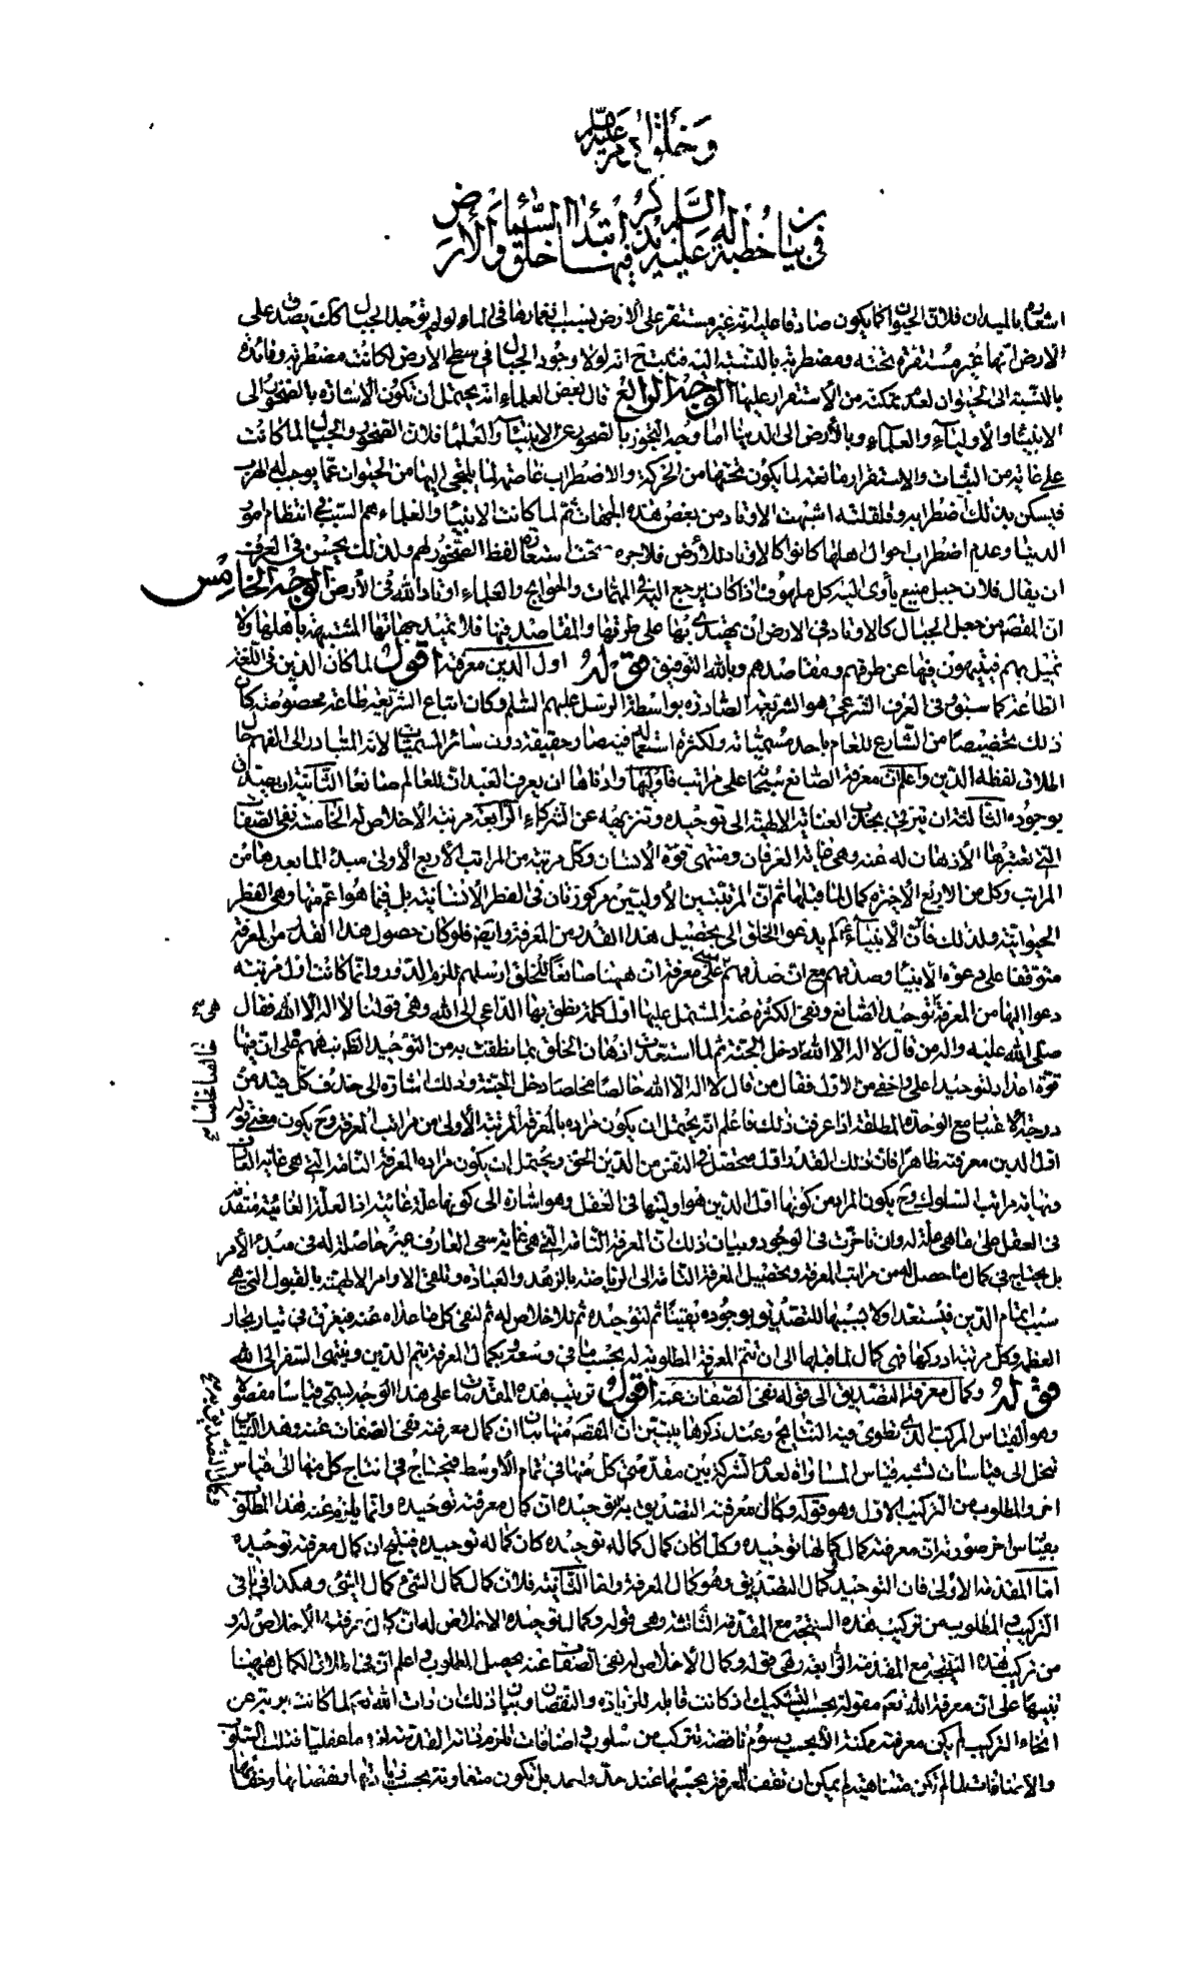 في بيان خطبة له عليه السلام يذكر فيها ابتداء خلق السماء والأرض
استعارة بالميدان فلان الحيوان كما يكون صادقا عليه انه غير مستقر على الأرض بسبب انغمارها في الماء لو لم توجد الجبال كذلك يصدق على
الارض انها غير مستقرة تحته ومضطربة بالنسبة اليه فثبت انه لولا وجود الجبال في سطح الأرض لكانت مضطربة وفائدة
بالنسبة الى الحيوان لعدم تمكنه من الأستقرار عليها الوجه الرابع قال بعض العلماء انه يحتمل ان تكون الأشارة بالصخور الى
الانبياء والأولياء والعلماء وبالأرض الى الدنيا اما وجه التجوز بالصخور عن الانبياء والعلماء فلان الصخور والجبال لما كانت
على غاية من الثبات والاستقرار مانعة لما يكون تحتها من الحركة والاضطراب عاصمة لما يلتجى اليها من الحيوان عما يوجب له الهرب
فيسكن بذلك اضطرابه وقلقلته اشبهت الاوتاد من بعض هذه الجهات ثم لما كانت الانبياء والعلماء هم السبب في انتظام امور
الدنيا وعدم اضطراب احوال اهلها كانوا كالاوتاد للأرض فلا جرم صحت استعارة لفظ الصخور لهم ولذلك يحسن في العرف
ان يقال فلان جبل منيع يأوى اليه كل ملهوف اذا كان يرجع اليه في المهمات والحوايج والعلماء اوتاد الله في الأرض الوجه الخامس
ان المقصود من جعل الجبال كالاوتاد في الارض ان يهتدى بها على طرقها والمقاصد فيها فلا تميد جهاتها المشتبهة بأهلها ولا
تميل بهم فيتيهون فيها عن طرقهم ومقاصدهم وبالله التوفيق قوله اول الدين معرفته أقول لما كان الدين في اللغة
الطاعة كما سبق وفي العرف الشرعي هو الشريعة الصادرة بواسطة الرسل عليهم السلم وكان اتباع الشريعة طاعة مخصوصة كان
ذلك تخصيصا من الشارع للعام باحد مسمياته ولكثرة استعماله فيه صار حقيقة دون سائر المسميات لانه المتبادر الى الفهم حال
اطلاق لفظه الدين واعلم ان معرفة الصانع سبحانه على مراتب فاوليها وادناها ان يعرف العبد ان للعالم صانعا الثانية ان يصدق
بوجوده الثالثة ان يترقى بجذب العناية الالهية الى توحيده وتنزيهه عن الشركاء الرابعة مرتبة الأخلاص له الخامسة نفى الصفات
التي تعتبرها الأذهان له عنه وهي غاية العرفان ومنتهى قوة الانسان وكل مرتبة من المراتب الأربع الأولى مبدأ لما بعدها من
المراتب وكل من الاربع الأخيرة كمال لما قبلها ثم ان المرتبتين الأوليين مركوزتان في الفطر الأنسانية بل فيما هو اعم منها وهي الفطر
الحيوانية ولذلك فان الانبياء لم يدعوا الخلق الى تحصيل هذا القدر من المعرفة وايضا فلو كان حصول هذا القدر من المعرفة
متوقفا على دعوة الانبياء وصدقهم مع ان صدقهم مبنى على معرفة ان ههنا صانعا للخلق ارسلهم للزم الدور وانما كانت اول مرتبة
دعوا اليها من المعرفة توحيد الصانع ونفى الكثرة عنه المشتمل عليها اول كلمة نطق بها الداعي الى الله وهي قولنا لا اله الا الله فقال
صلى الله عليه واله من قال لا اله الا الله دخل الجنة ثم لما استعدت اذهان الخلق بما نطقت به من التوحيد الظاهر نبههم على ان فيها
قوة اعداد لتوحيد اعلى واخفى من الاول فقال من قال لا اله الا الله خالصا مخلصا دخل الجنة وذلك اشارة الى حذف كل قيد من
درجة الاعتبار مع الوحدة المطلقة اذا عرفت ذلك فاعلم انه يحتمل ان يكون مراده بالمعرفة المرتبة الأولى من مراتب المعرفة وح يكون معنى قوله
اول الدين معرفته ظاهرا فان ذلك القدر اول متحصل في النفس من الدين الحق ويحتمل ان يكون مراده المعرفة التامة التي هي غاية العارف
ونهاية مراتب السلوك وح يكون المراد من كونها اول الدين هو اوليتها في العقل وهو اشارة الى كونها علة غائية اذ العلة الغائية متقدمة
في العقل على ما هي علة له وان تأخرت في الوجود وبيان ذلك ان المعرفة التامة التي هي غاية سعى العارف غير حاصلة له في مبدء الأمر
بل يحتاج في كمال ما حصل له من مراتب المعرفة وتحصيل المعرفة التامة الى الرياضة بالزهد والعبادة وتلقى الاوامر الالهية بالقبول التي هي
سبب اتمام الدين فيستعد اولا بسببها للتصديق بوجوده يقينا ثم لتوحيده ثم للاخلاص له ثم لنفى كل ما عداه عنه فيغرق في تيار بحار
العظمة وكل مرتبة ادركها فهى كمال لما قبلها الى ان تتم المعرفة المطلوبة له بحسب ما في وسعه وبكمال المعرفة يتم الدين وينتهى السفر الى الله
قوله وكمال معرفته التصديق الى قوله نفى الصفات عنه أقول ترتيب هذه المقدمات على هذا الوجه يسمى قياسا مفصولا
وهو القياس المركب الذى تطوى فيه النتايج وعند ذكرها يتبين ان المقصود منها بيان ان كمال معرفته نفى الصفات عنه وهذا القياس
تنحل الى قياسات تشبه قياس المساواة لعدم الشركة بين مقدمتى كل منها في تمام الأوسط فيحتاج في انتاج كل منها الى قياس
اخر والمطلوب من التركيب الاول وهو قوله وكمال معرفته التصديق به توحيده ان كمال معرفته توحيده وانما يلزم عنه هذا المطلوب
بقياس اخر صورته ان معرفته كمال كمالها توحيده وكل ما كان كمال كماله توحيده كان كماله توحيده فينتج ان كمال معرفته توحيده
اما المقدمة الأولى فلان التوحيد كمال التصديق وهو كمال المعرفة واما الثانية فلان كمال كمال الشئ كمال الشئ وهكذا في باقى
التركيب والمطلوب من تركيب هذه النتيجة مع المقدمة الثالثة وهي قوله وكمال توحيده الاخلاص له ان كمال معرفته الأخلاص له و
من تركيب هذه النتيجة مع المقدمة الرابعة وهى قوله وكمال الأخلاص له نفى الصفات عنه يحصل المطلوب واعلم ان في اطلاق الكمال ههنا
تنبيها على ان معرفة الله تعم مقولة بحسب التشكيك اذ كانت قابلة للزيادة والنقصان وبيان ذلك ان ذات الله تعم لما كانت بريئة عن
انحاء التركيب لم يكن معرفته ممكنة الأ بحسب رسوم ناقصة تتركب من سلوب واضافات تلزم ذاته المقدسة لزوما عقليا فتلك السلوب
والاضافات لما لم تكن متناهية لم يمكن ان تقف المعرفة بحسبها عند حد واحد بل تكون متفاوتة بحسب زيادتها ونقصانها وخفائها
خالصا مخلصا
وكمال التصديق به